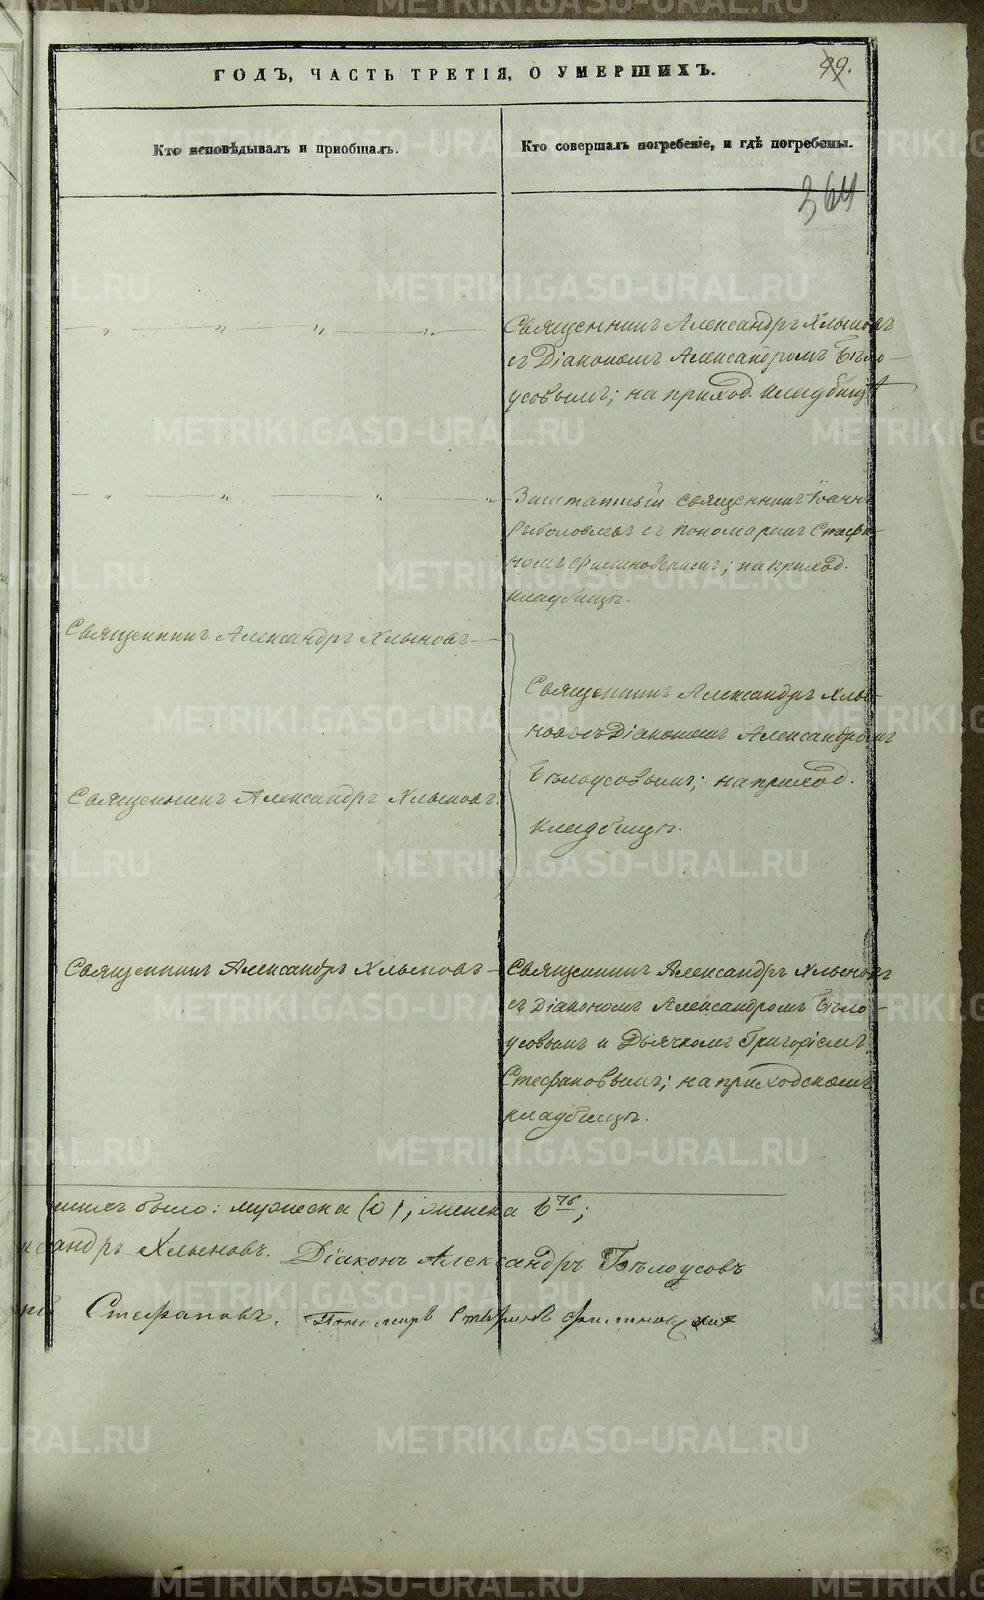 ГОДЪ, ЧАСТЬ ТРЕТІЯ, О УМЕРШИХЪ.
99.
Кто исповѣдывалъ и приобщалъ.
Кто совершалъ погребеніе, и гдѣ погребены.
364
Священникъ Александръ Хлыновъ
съ Діакономъ Александромъ Бѣло-
усовымъ; на приход. кладбищѣ
Заштатный священникъ Іоаннъ
Рыболовлевъ съ пономаремъ Стефа-
номъ Филиновскимъ; на приход.
кладбищѣ.
Священникъ Александръ Хлыновъ
Священникъ Александръ Хлы-
новъ съ Діакономъ Александромъ
Бѣлоусовымъ; на приход.
кладбищѣ.
Священникъ Александръ Хлыновъ.
Священникъ Александръ Хлыновъ
Священникъ Александръ Хлыновъ
съ Діакономъ Александромъ Бѣло-
усовымъ и Дьячкомъ Григоріемъ
Стефановымъ; на приходскомъ
кладбищѣ.
было: мужеска (0), женска 6;
сандръ Хлыновъ. Діаконъ Александръ Бѣлоусовъ
рій Стефановъ. Пономарь Стефанъ
METRIKI.GASO-URAL.RU